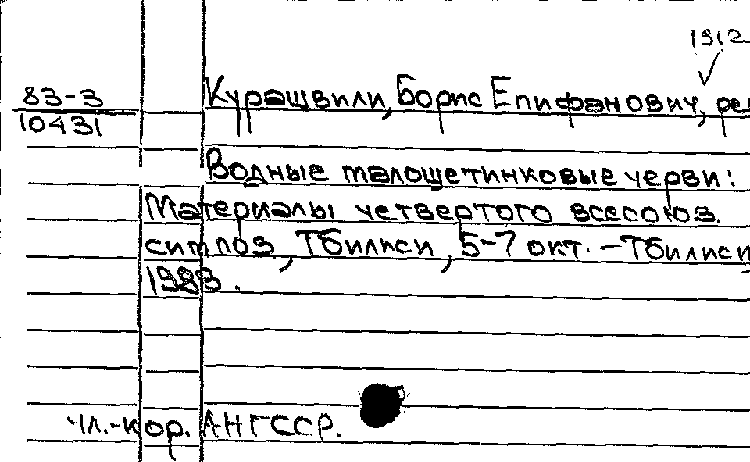 1912
83-3
10431
Курашвили, Борис Епифанович, ре
Водные малощетинковые черви:
Материалы четвертого всесоюз.
симпоз, Тбилиси, 5-7 окт. - Тбилиси
1983.
Чл.-кор. АН ГССР.